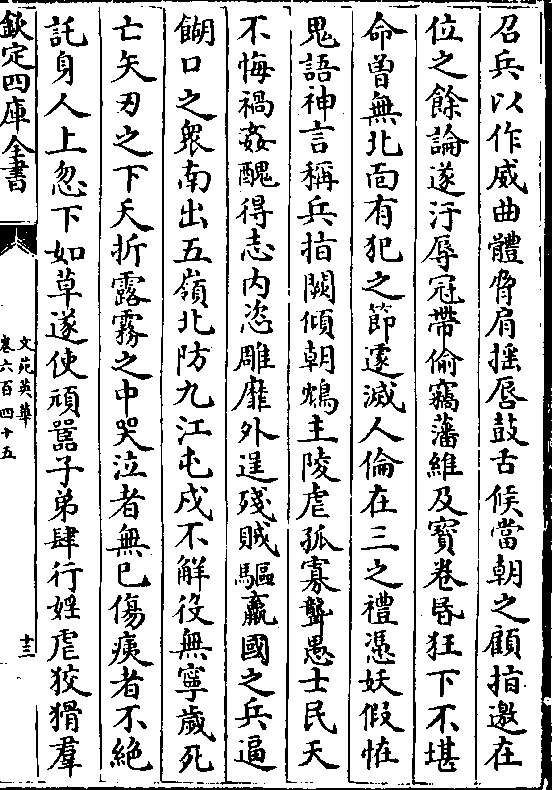 召兵以作威曲體脅肩揺唇鼓舌候當朝之顧指邀在
位之餘論遂汙辱冠帶偷竊藩維及寳卷昏狂下不堪
命曽無北面有犯之節遽滅人倫在三之禮憑妖假恠
鬼語神言稱兵指闕傾朝鴆主陵虐孤寡聾愚士民天
不悔禍姦醜得志内恣雕靡外逞殘賊驅羸國之兵逼
餬口之衆南出五嶺北防九江屯戍不解役無寧歲死
亡矢刃之下夭折露霧之中哭泣者無已傷痍者不絶
託身人上忽下如草遂使頑嚚子弟肆行婬虐狡猾羣
欽定四庫全書
文苑英華
卷六百四十五
十三